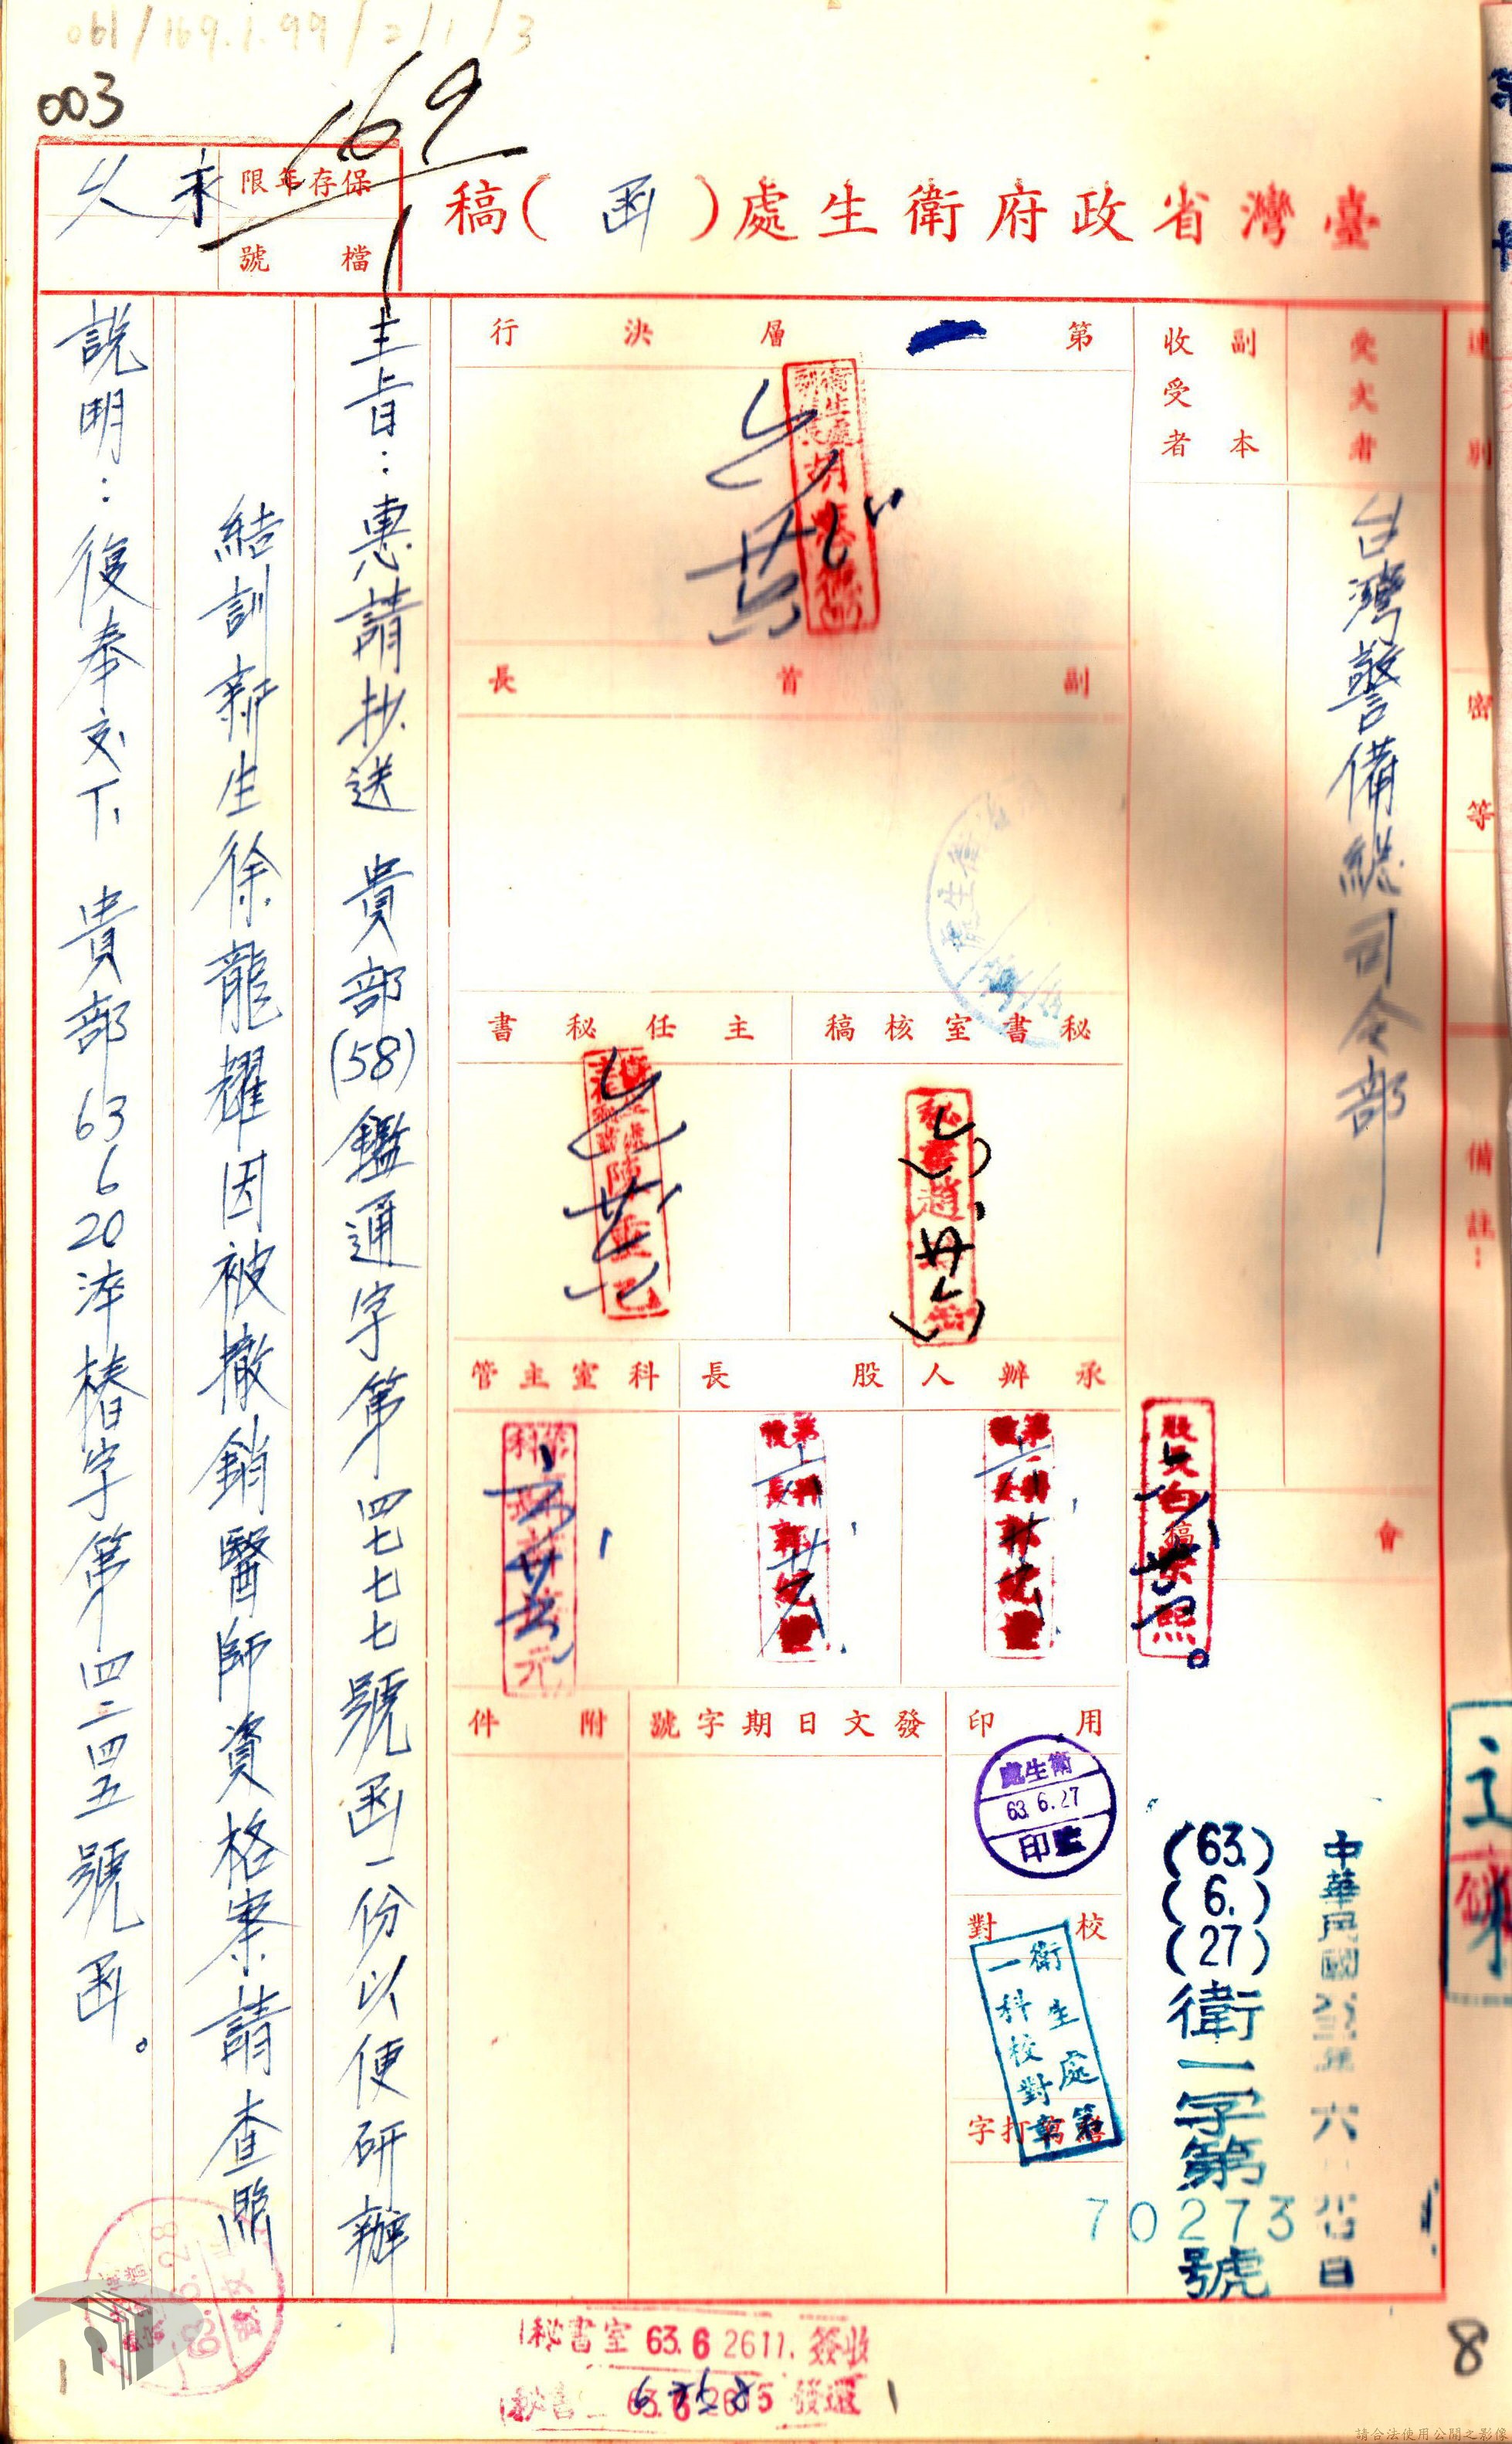 061/169.1.99/2/1/3
003
169
保存年限
永久
檔號
臺灣省政府衛生處(函)稿
速別
密等
備註：
受文者
台灣警備總司令部
副本
收受者
會
第一層決行
副首長
秘書室核稿
主任秘書
承辦人
股長
科室主管
用印
衛生處
63.6.27
印
校對
衛生處第
一科校對章
打字
發文日期字號
附件
中華民國
六
日
(63.)
(6.)
(27)
衛一字第
70273
號
主旨：惠請抄送 貴部(58)鑑通字第四七七七號函一份以便研辦
結訓新生徐龍耀因被撤銷醫師資格案請查照
說明：復奉交下 貴部63 6 20淬椿字第四二四五號函。
秘書室 63.6 26 11. 簽收
63.6 發還
8
請合法使用公開之影像